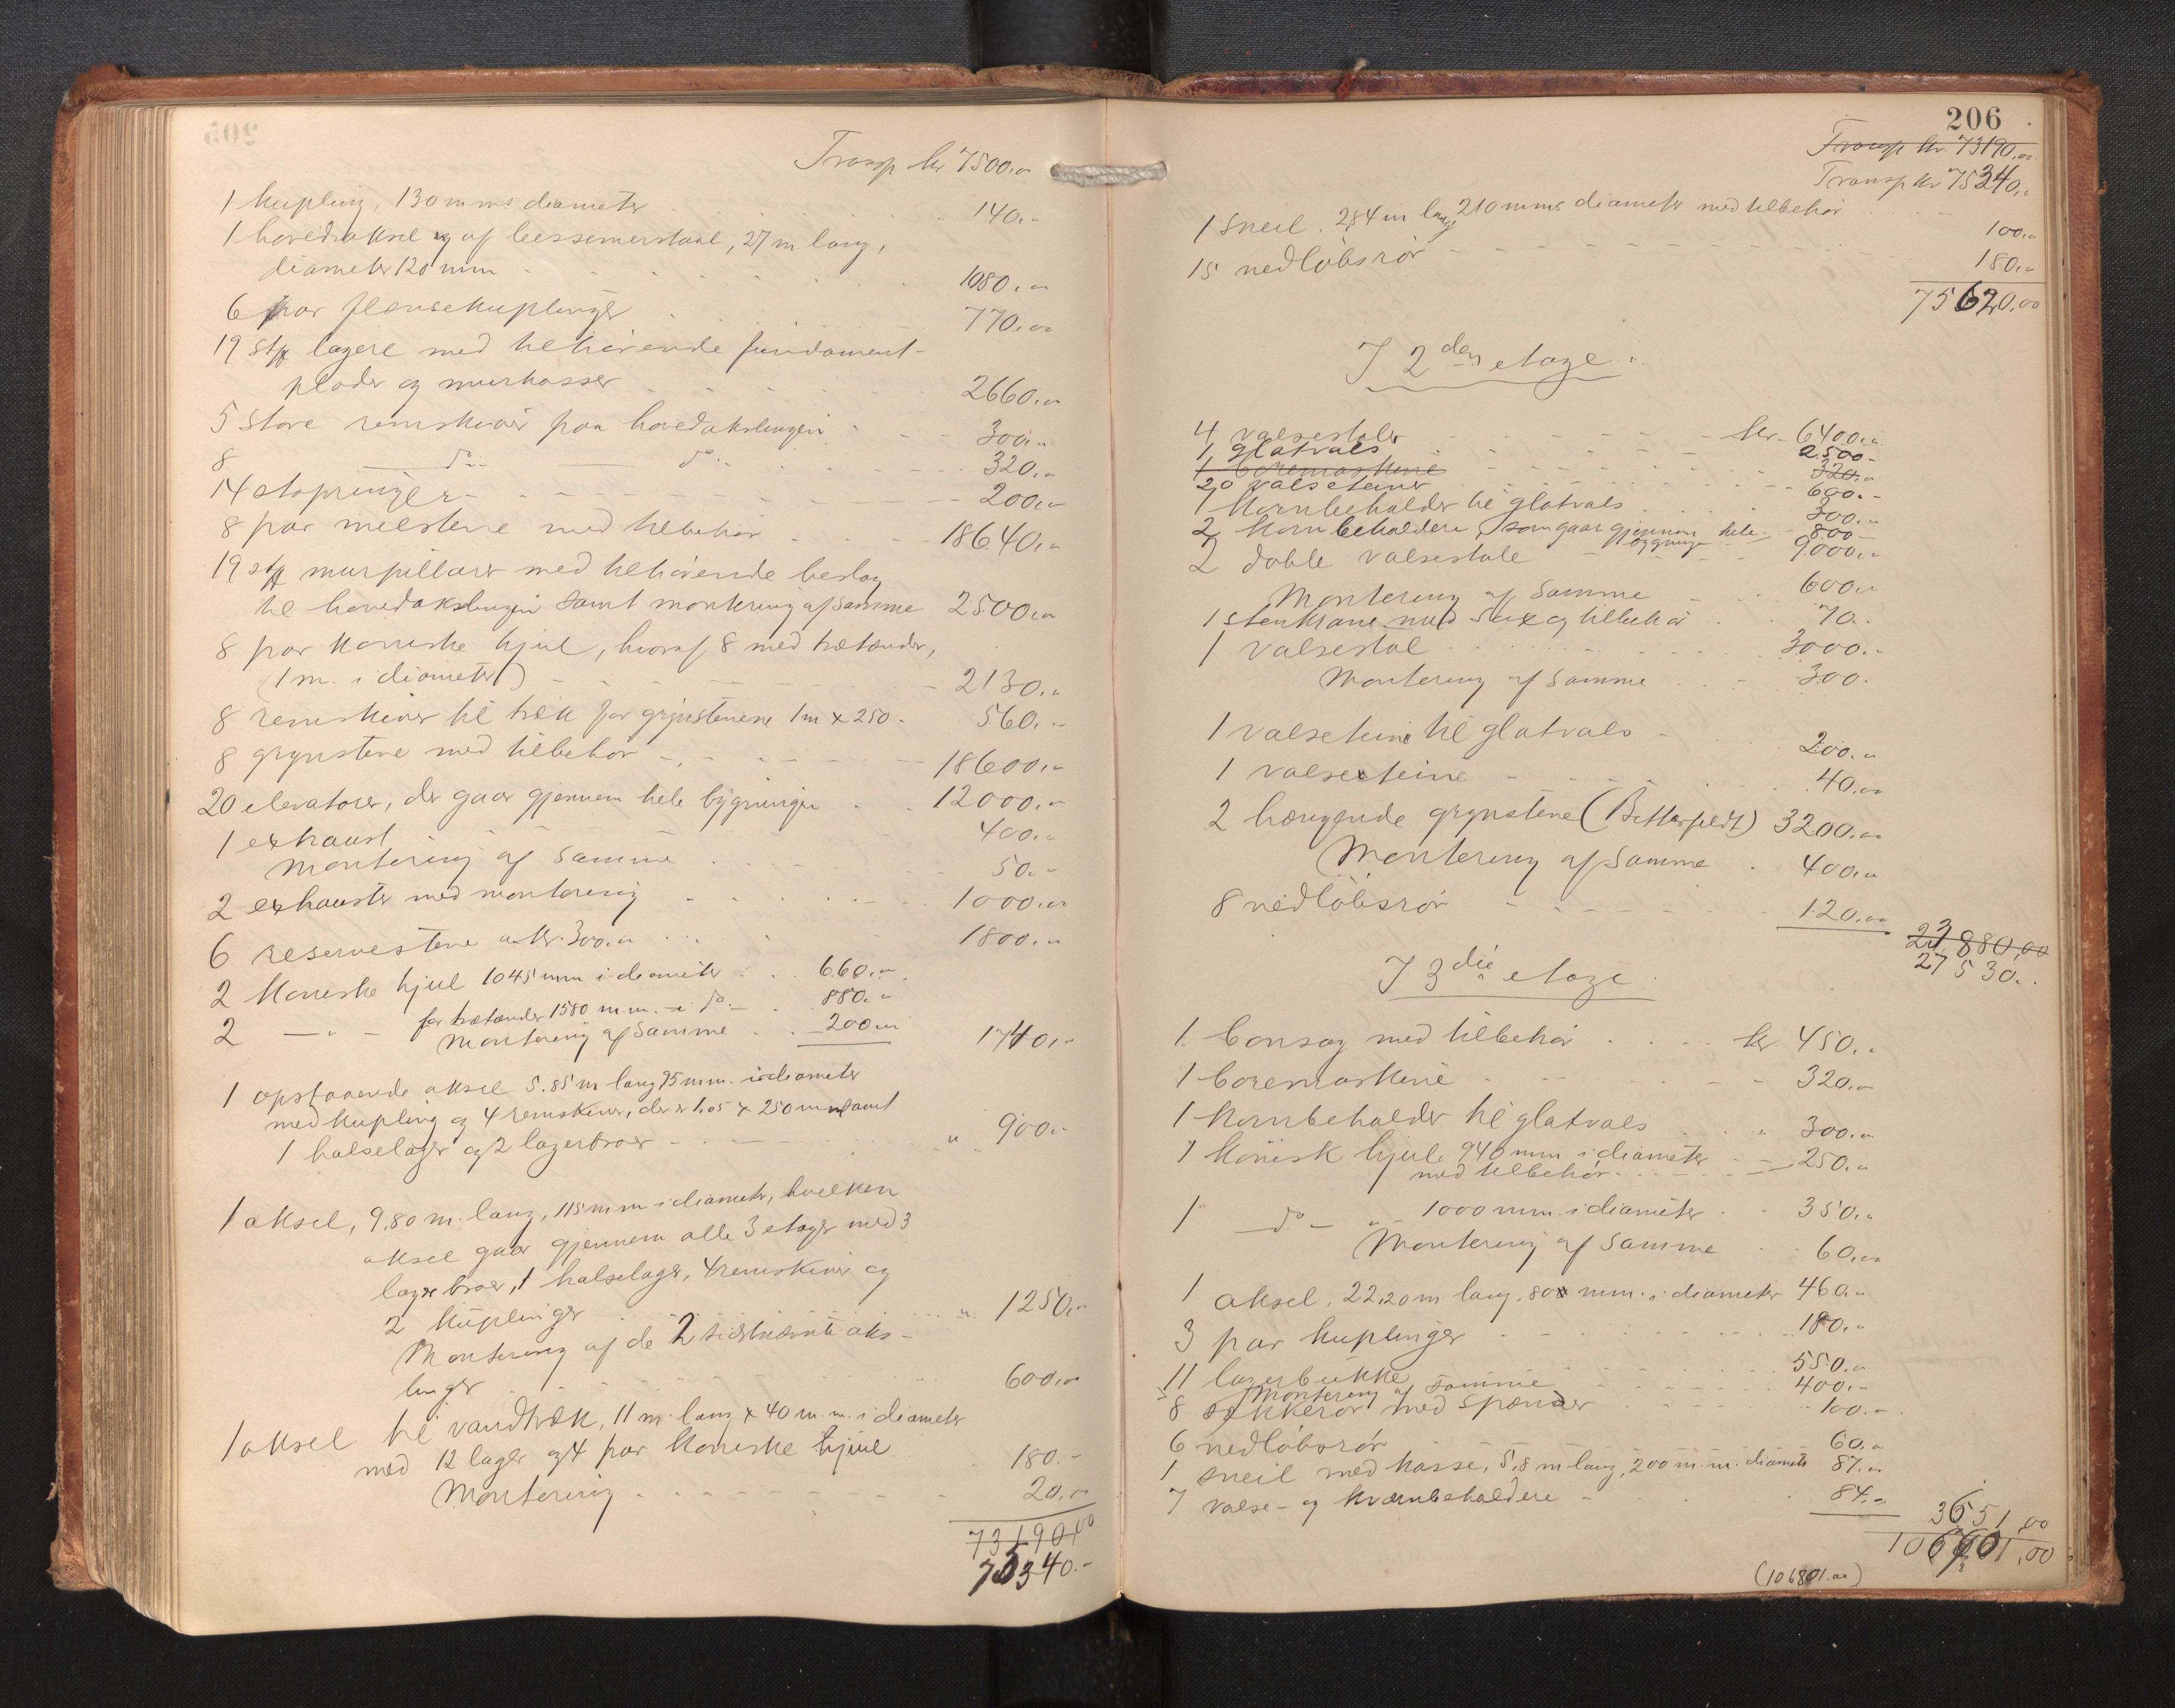 Transp kr 7500.00
1 kupling, 130 mms diameter 140.-
1 hovedaksel og af bessemerstaal, 27 m lang,
diameter 120 mm 1080.00
6 par flansekuplinger 770.00
19 stk lagere med tilhørende fundament-
plader og murkasser 2660.00
5 store remskiver paa hovedakslingen 300.00
8 do do 320.-
14 stopringer 200.00
8 par melstene med tilbehør 18640.00
19 stk murpillarer med tilhørende beslag
til hovedakslingen samt montering af samme 2500.00
8 par koniske hjul, hvoraf 8 med trætænder,
(1 m. i diameter) 2130.00
8 remskiver til træk for grynstenene 1 m x 250. 560.-
8 grynstene med tilbehør 18600.-
20 elevatorer, der gaar gjennem hele bygningen 12000.-
1 exhaust 400.-
Montering af samme 50.-
2 exhauster med montering 1000.00
6 reservestene a kr. 300.00 1800.00
2 koniske hjul 1045 mm i diameter 660.-
2 — " — for trætænder 1580 m.m. i do 880.-
Montering af samme 200.00 1740.-
1 opstaaende aksel 5.85 m lang 75 mm. i diameter
med kupling og 4 remskiver, der er 1.05 x 250 mm samt
1 halselager og 2 lagerbroer " 900.-
1 aksel, 9.80 m. lang, 115 m m i diameter, hvilken
aksel gaar gjennem alle 3 etager med 3
lagerbroer, 1 halselager, 4 remskiver og
2 kuplinger " 1250.-
Montering af de 2 sidstnævnte aks-
linger 600.00
1 aksel til vandtræk, 11 m. lang x 40 m.m. i diameter
med 12 lager og 4 par koniske hjul 180.-
Montering 20.00
73190.00
75340.-
206
Transp kr 73190.00
Transp kr 75340.-
1 sneil. 2,84 m lang 210 mms diameter med tilbehør 100.00
15 nedløbsrør 180.00
75620.00
I 2den etage.
4 valsestoler kr. 6400.00
1 glatvals 2500-
1 boremaskine 320.-
20 valseteiner 600.-
1 Kornbeholder til glatvals 300.-
2 Kornbeholdere, som gaar gjennem hele bygningen 800-
2 doble valsestole 9000.-
Montering af samme 600.00
1 stenkrane med sax og tilbehør 70.-
1 valsestol 3000.-
Montering af samme 300.
1 valseteine til glatvals 200.00
1 valseteine 40.00
2 hængende grynstene (Bitterfeldt) 3200.00
Montering af samme 400.00
8 nedløbsrør 120.00
27880,00
27530.-
I 3die etage.
1 bonsag med tilbehør kr 450.-
1 boremaskine 320.00
1 Kornbeholder til glatvals 300.00
1 konisk hjul 940 mm i diameter
med tilbehør 250.00
1 — do — " 1000 mm. i diameter 350.00
Montering af samme 60.00
1 aksel. 22,20 m. lang. 80 mm. i diameter 460.00
3 par kuplinger 180.-
11 lagerbukke 550.00
Montering af samme 400.-
8 sækkerør med spænder 100.-
6 nedløbsrør 60.00
1 sneil med kasse, 5,8 m lang, 200 m.m. diameter 87.00
7 valse- og kværnbeholdere 84.00
3651,00
106801,00
(106801.00)